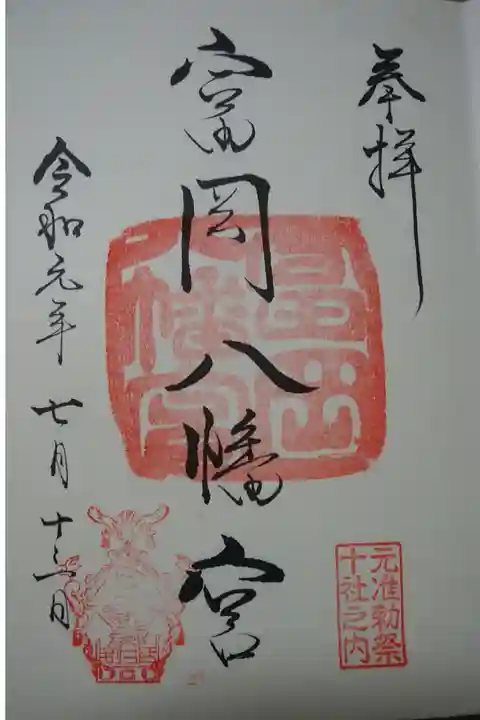 奉拝
富岡八幡宮
令和元年七月十三日
元准勅祭
十社之内
富岡
八幡宮